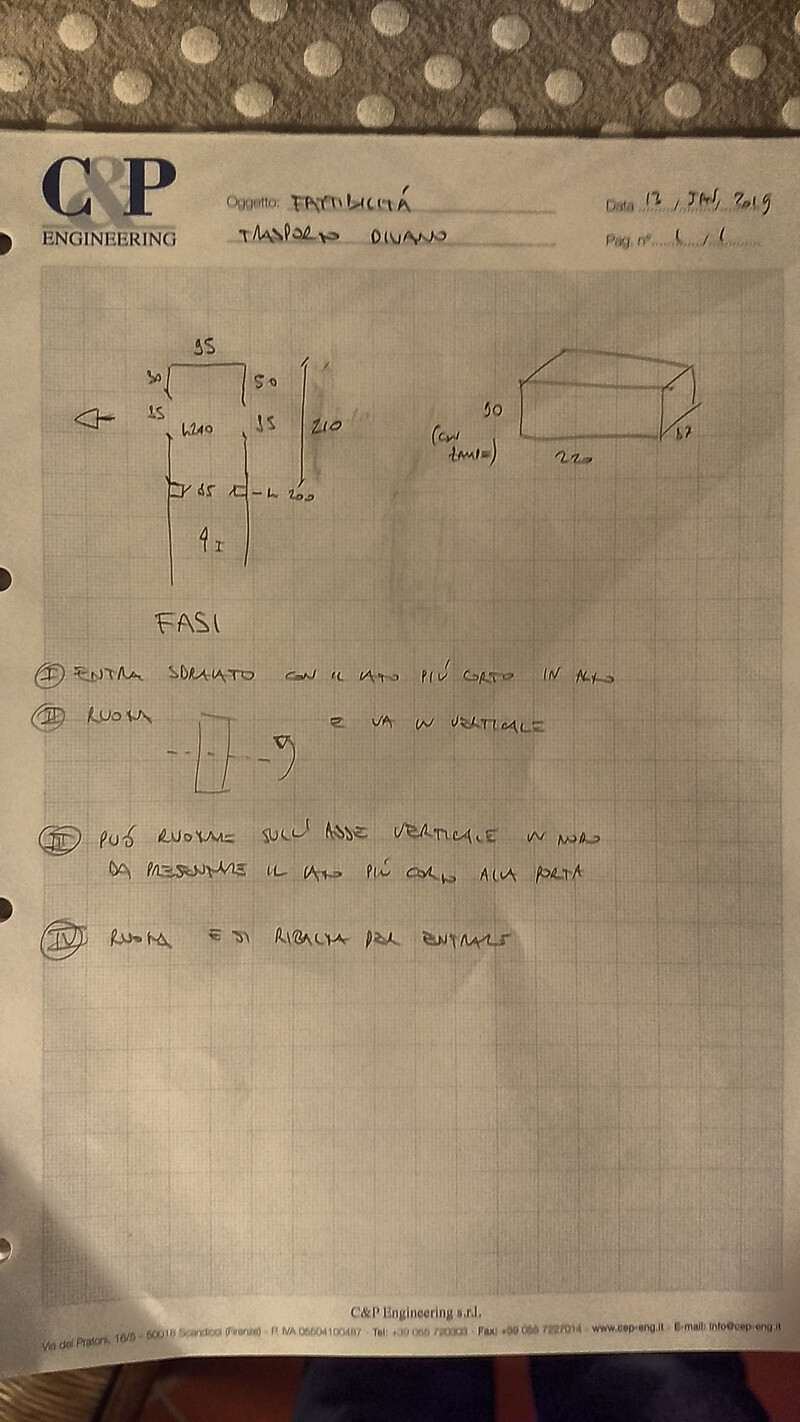 C&P
ENGINEERING
Oggetto: FATTIBILITÁ
TRASPORTO DIVANO
Data 12 / JAN / 2019
Pag. n° 1 / 1
95
30
50
h240
210
85
h 200
I
90
220
FASI
I ENTRA SDRAIATO CON IL LATO PIÚ CORTO IN ALTO
II RUOTA E VA IN VERTICALE
III PUÓ RUOTARE SULL'ASSE VERTICALE IN MODO
DA PRESENTARE IL LATO PIÚ CORTO ALLA PORTA
IV RUOTA E SI RIBALTA PER ENTRARE
C&P Engineering s.r.l.
Via dei Pratoni, 16/5 - 50018 Scandicci (Firenze) - P. IVA 05504100487 - Tel: +39 055 720303 - Fax: +39 055 7227014 - www.cep-eng.it - E-mail: info@cep-eng.it